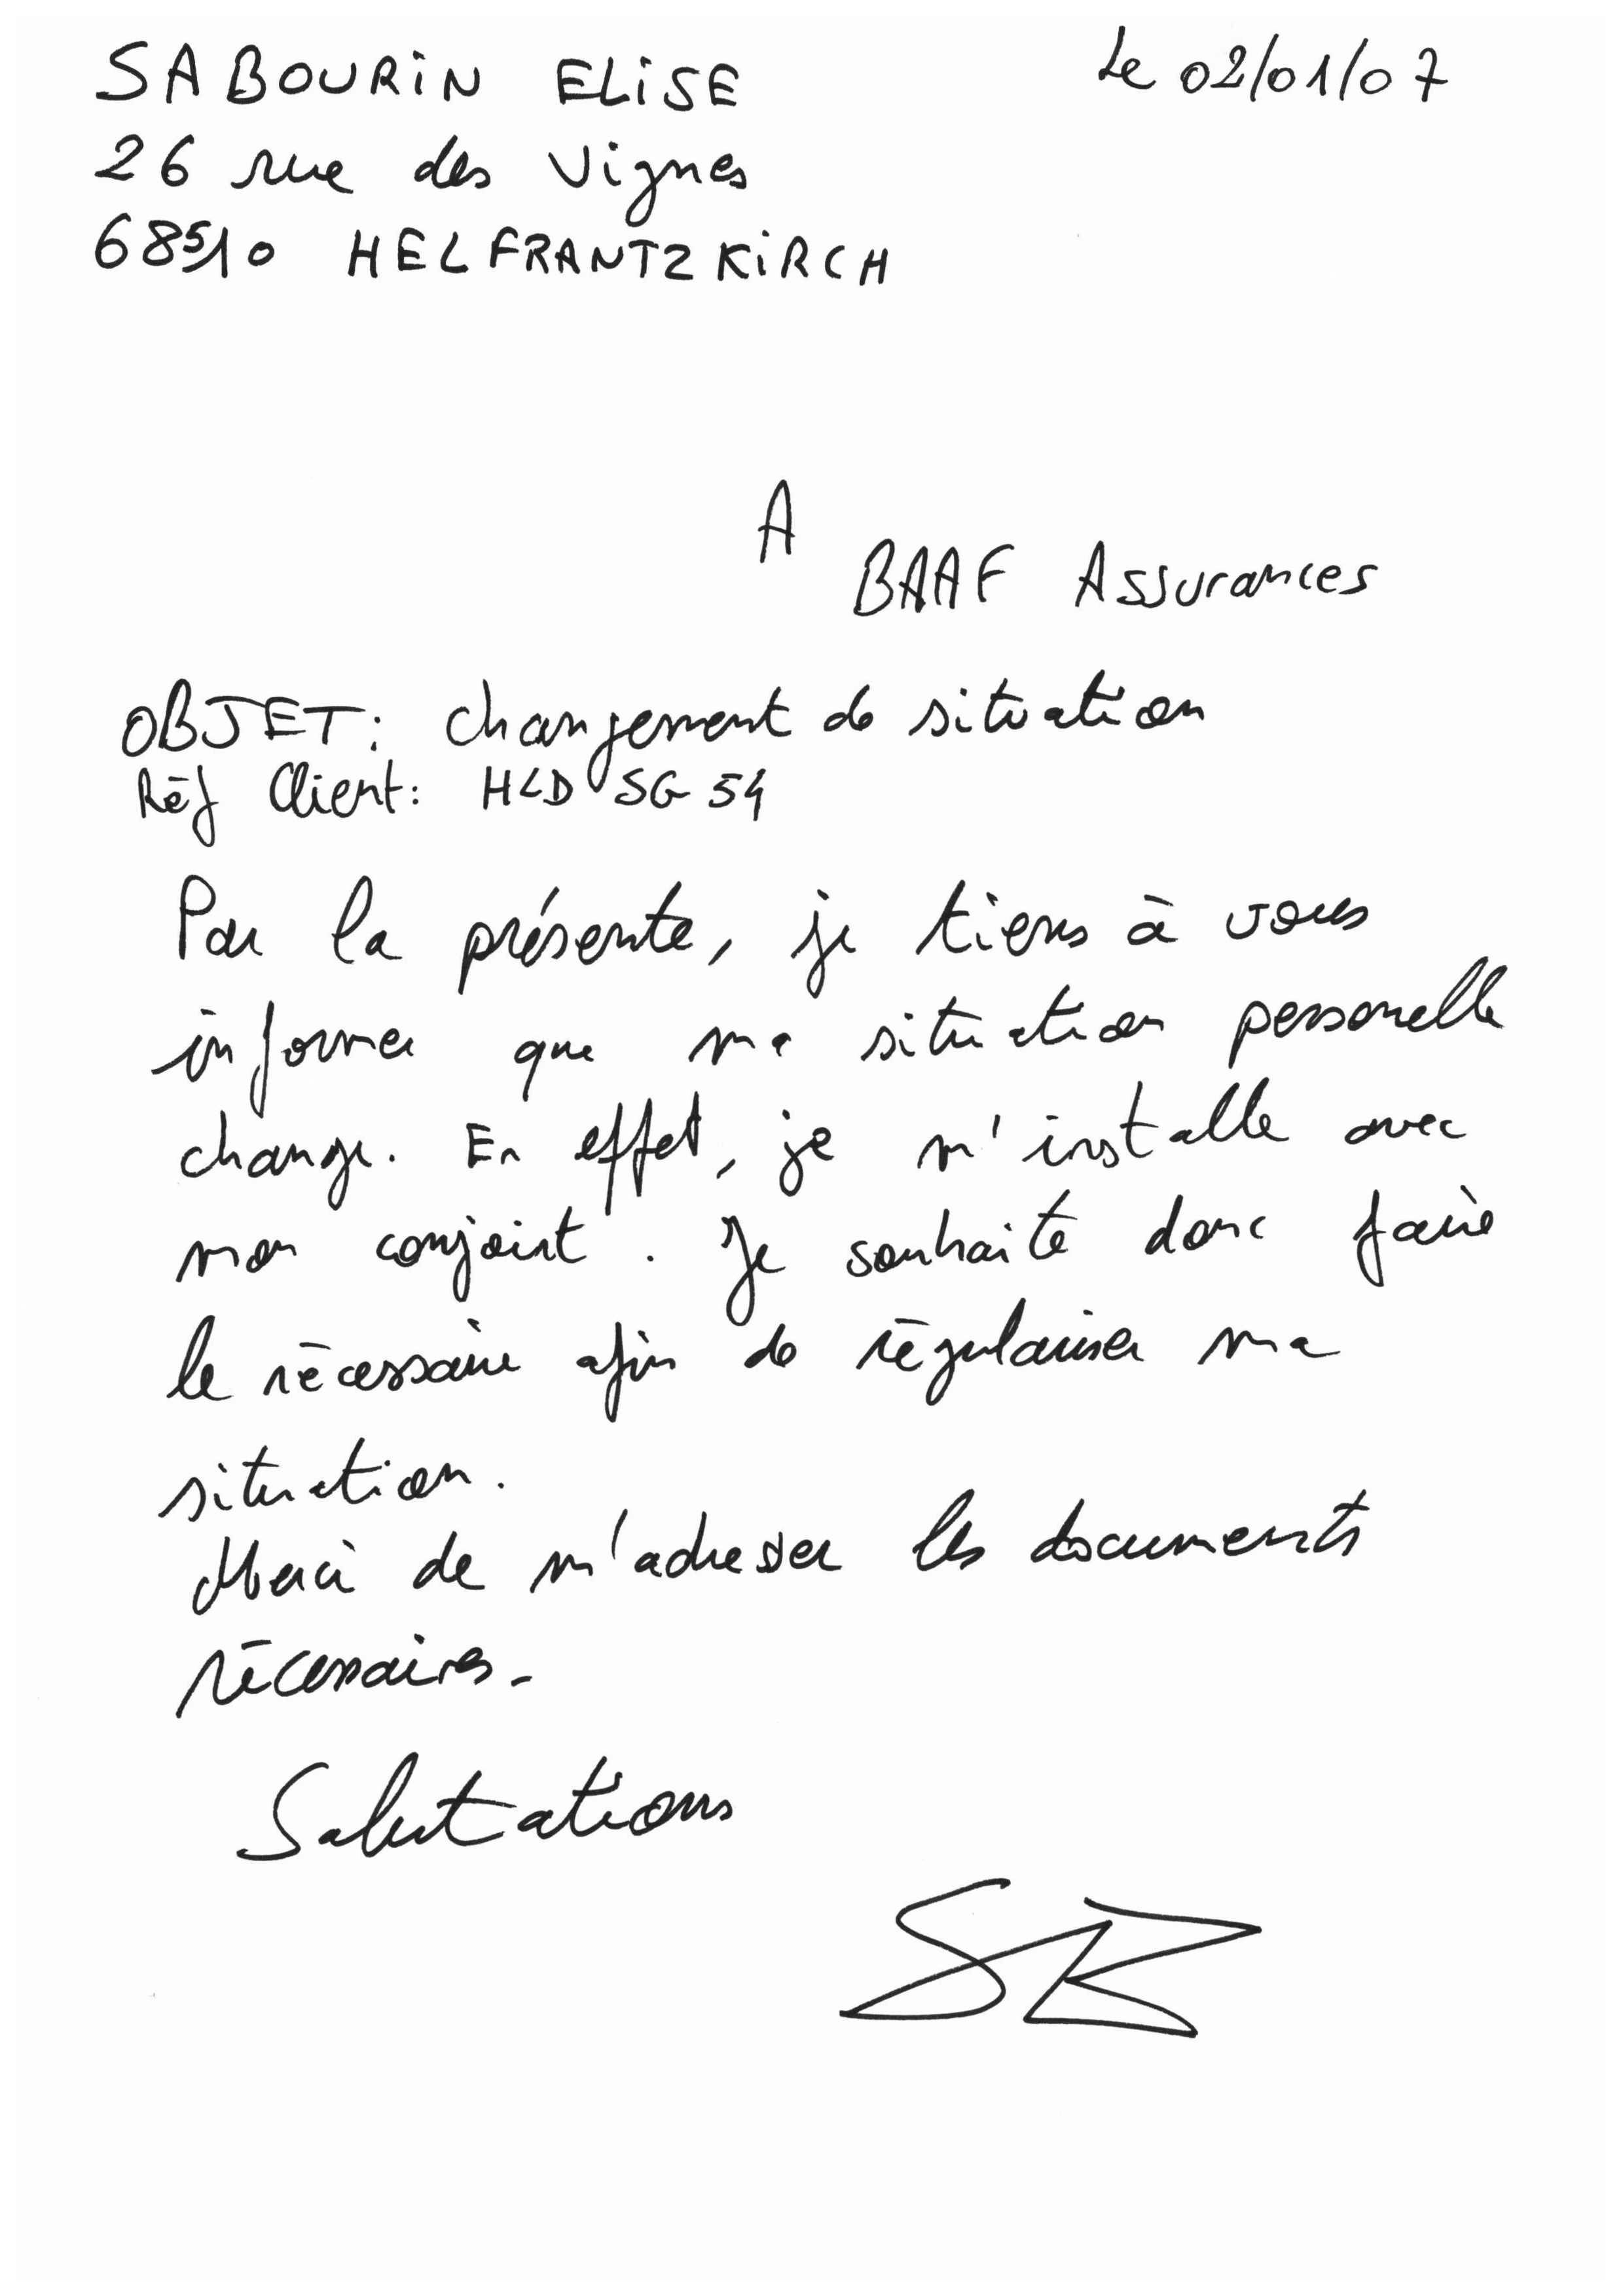 SABOURIN ELISE
Le 02/01/07
26 rue des Vignes
68510 HELFRANTZKIRCH
A
BAAF Assurances
OBJET: changement de situation
Réf Client: HLD SG 54
Par la présente, je tiens à vous
informer que ma situation personelle
change. En effet, je m'installe avec
mon conjoint. Je souhaite donc faire
le nécessaire afin de régulariser ma
situation.
Merci de m'adresser les documents
nécessaires.
Salutations